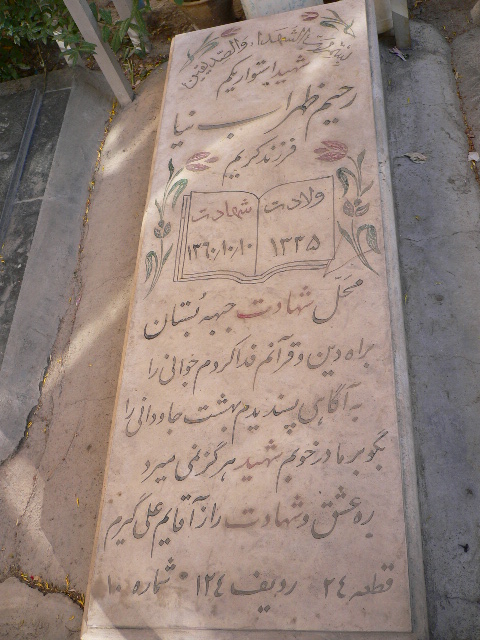 بسم رب الشهداء والصدیقین
شهید استوار یکم
رحیم ظهراب نیا
فرزند کریم
ولادت
۱۳۳۵
شهادت
۱۳۶۰/۱۰/۱۰
محل شهادت جبهه بُستان
براه دین و قرآنم فدا کردم جوانی را
به آگاهی پسندیدم بهشت جاودانی را
بگو بر مادر خوبم شهید هرگز نمی میرد
ره عشق و شهادت را ز آقایم علی گیرم
قطعه ۲۴ ردیف ۱۲۴ شماره ۱۰